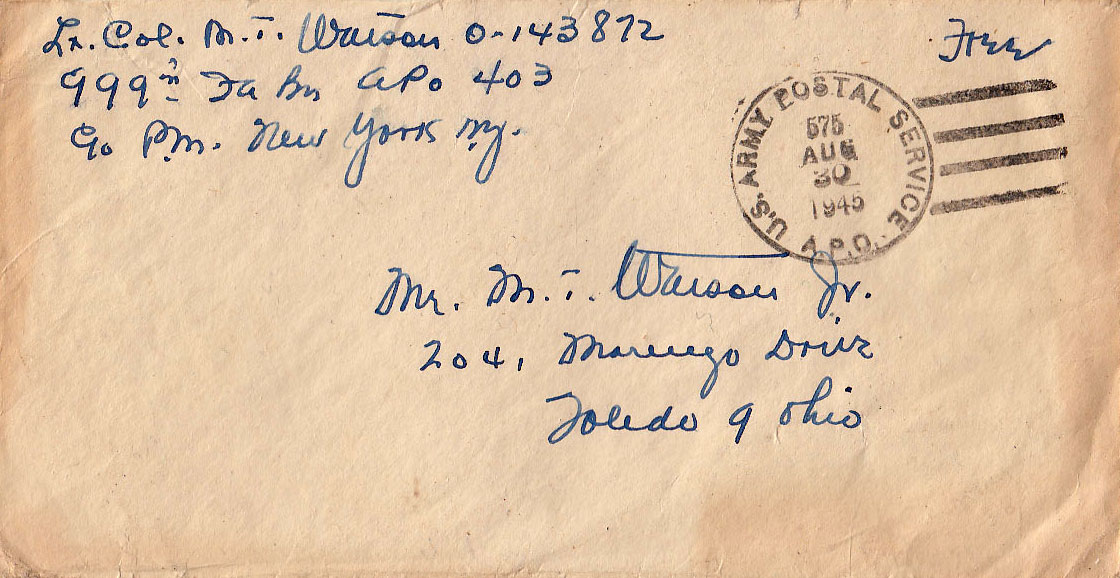 Lt. Col. M.T. Watson O-143872
999th Fa Bn APO 403
c/o P.M. New York N.Y.
Free
U.S. ARMY POSTAL SERVICE
575
AUG
30
1945
A.P.O.
Mr. M.T. Watson Jr.
204, Marengo Drive
Toledo 9 Ohio